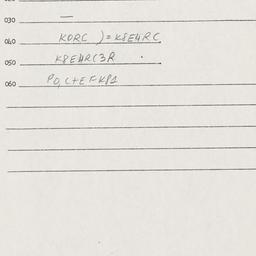 030 —
040 KORC )=K8E4RC
050 K8E4RC3R .
060 PO,C+EFKP1